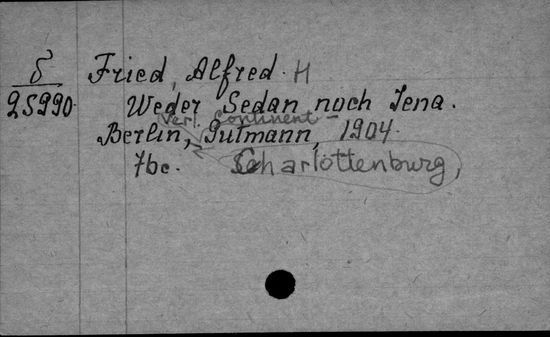 б Fried, Alfred H
25990 Weder Sedan noch Jena.
Verl. Continent
Berlin, Gutmann, 1904.
76c. Charlottenburg,